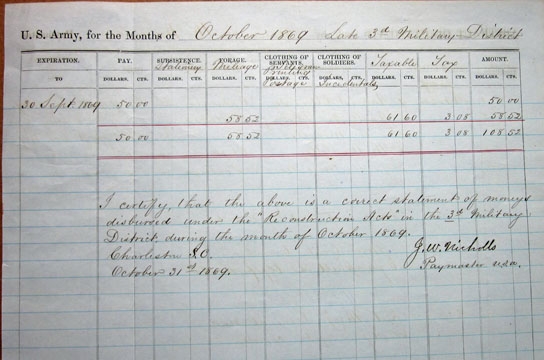 U. S. Army, for the Months of October 1869 Late 3d Military District
EXPIRATION. PAY. SUBSISTENCE. FORAGE. CLOTHING OF SERVANTS. CLOTHING OF SOLDIERS. Taxable Tax AMOUNT.
Stationery Mileage Printing Postage Incidentals
TO DOLLARS. CTS. DOLLARS. CTS. DOLLARS. CTS. DOLLARS. CTS. DOLLARS. CTS. DOLLARS. CTS. DOLLARS. CTS. DOLLARS. CTS.
30 Sept. 1869 50 00 50 00
58 52 61 60 3 08 58 52
50 00 58 52 61 60 3 08 108 52
I certify, that the above is a correct statement of moneys
disbursed under the "Reconstruction Acts" in the 3d Military
District, during the month of October 1869.
Charleston S.C.
October 31st 1869.
J. W. Nicholls
Paymaster U.S.A.